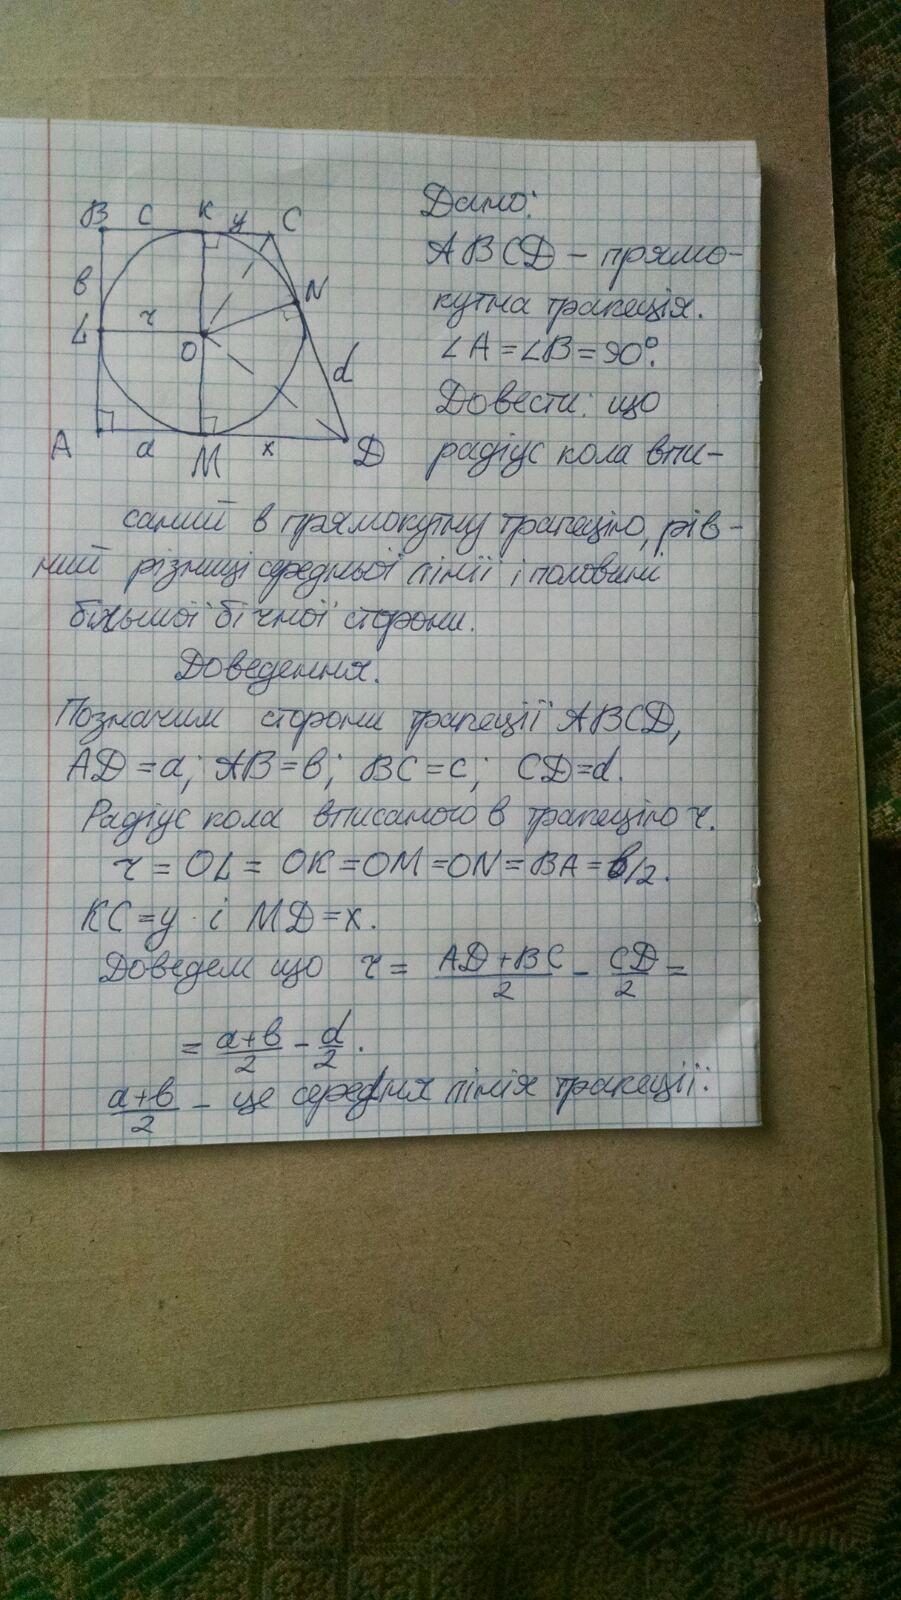 B c K y C
в N
L r
O d
A a M x D
Дано:
ABCD – прямо-
кутна трапеція.
∠A = ∠B = 90°.
Довести: що
радіус кола впи-
саний в прямокутну трапецію, рів-
ний різниці середньої лінії і половини
більшої бічної сторони.
Доведення.
Позначим сторони трапеції ABCD,
AD = a; AB = в; BC = c; CD = d.
Радіус кола вписаного в трапецію r.
r = OL = OK = OM = ON = BA = в/2.
KC = y і MD = x.
Доведем що r = (AD + BC)/2 – CD/2 =
= (a+в)/2 – d/2.
(a+в)/2 – це середня лінія трапеції.